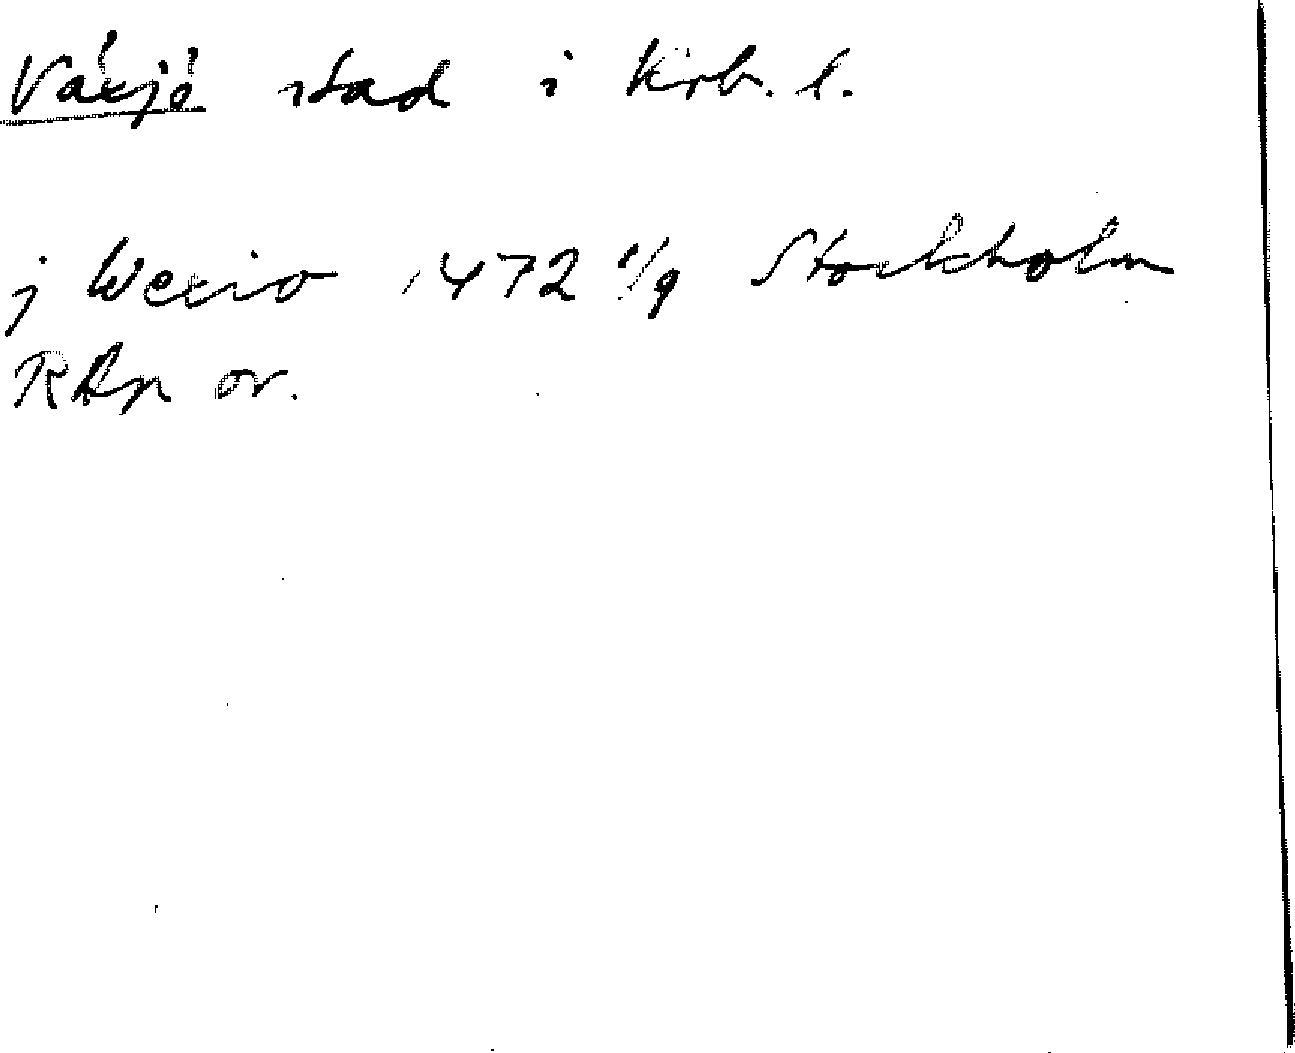 Växjö stad i Krb. l.
j Wexio 1472 1/9 Stockholm
RAp or.